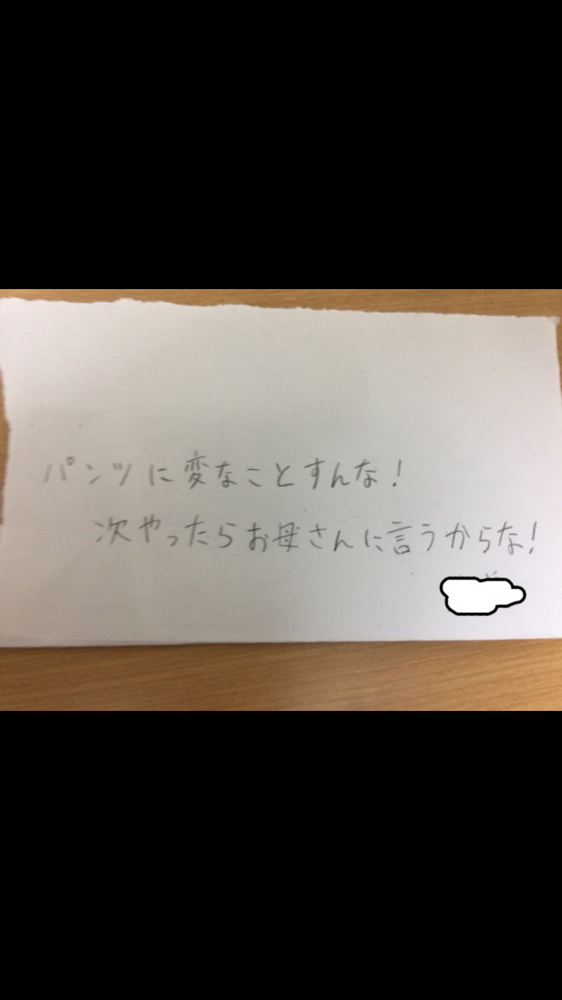 パンツに変なことすんな!
次やったらお母さんに言うからな!